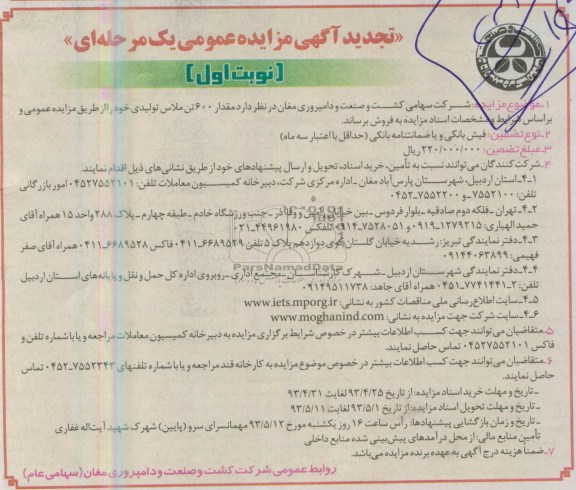 «تجدید آگهی مزایده عمومی یک مرحله‌ای»
(نوبت اول)
۱-موضوع مزایده: شرکت سهامی کشت و صنعت و دامپروری مغان در نظر دارد مقدار ۶۰۰ تن ملاس تولیدی خود را از طریق مزایده عمومی و
براساس شرایط و مشخصات اسناد مزایده به فروش برساند.
۲-نوع تضمین: فیش بانکی و یا ضمانتنامه بانکی (حداقل با اعتبار سه ماه)
۳-مبلغ تضمین: ۲۲۰/۰۰۰/۰۰۰ ریال
۴-شرکت کنندگان می‌توانند نسبت به تأمین، خرید اسناد، تحویل و ارسال پیشنهادهای خود از طریق نشانی‌های ذیل اقدام نمایند.
۴-۱-استان اردبیل، شهرستان پارس‌آباد مغان-اداره مرکزی شرکت، دبیرخانه کمیسیون معاملات تلفن: ۰۴۵۲۷۵۵۲۱۰۱ امور بازرگانی
تلفن: ۷۵۵۲۱۰۰ و ۷۵۵۲۲۰۰-۰۴۵۲
۴-۲-تهران-فلکه دوم صادقیه-بلوار فردوس-بین خیابان ولیعصر و وفاآذر-جنب ورزشگاه خادم-طبقه چهارم-پلاک ۲۸۸ واحد ۱۵ همراه آقای
حمید الهیاری: ۱۲۷۹۲۱۵-۰۹۱۹ و ۷۵۲۸۰۵۱-۰۹۱۴ تلفکس ۴۴۹۶۱۹۸۰-۰۲۱
۴-۳-دفتر نمایندگی تبریز: رشدیه خیابان گلستان کوی دوازدهم پلاک ۵ تلفن ۶۶۸۹۵۲۹-۰۴۱۱ فاکس ۶۶۸۹۵۲۸-۰۴۱۱ همراه آقای صفر
فهیمی: ۰۹۱۴۴۰۶۳۸۹۹
۴-۴-دفتر نمایندگی شهرستان اردبیل-شهرک کارشناسان-مجتمع اداری-روبروی اداره کل حمل و نقل و پایانه‌های استان اردبیل
تلفن: ۲-۷۷۴۱۴۴۱-۰۴۵۱ همراه آقای جاهد: ۰۹۱۴۹۵۱۱۷۳۸
۴-۵-سایت اطلاع‌رسانی ملی مناقصات کشور به نشانی: www.iets.mporg.ir
۴-۶-سایت شرکت جهت مزایده به نشانی: www.moghanind.com
۵-متقاضیان می‌توانند جهت کسب اطلاعات بیشتر در خصوص شرایط برگزاری مزایده به دبیرخانه کمیسیون معاملات مراجعه و یا با شماره تلفن و
فاکس ۰۴۵۲۷۵۵۲۱۰۱ تماس حاصل نمایند.
۶-متقاضیان می‌توانند جهت کسب اطلاعات بیشتر در خصوص موضوع مزایده به کارخانه قند مراجعه و یا با شماره تلفنهای ۷۵۵۲۳۴۳-۰۴۵۲ تماس
حاصل نمایند.
-تاریخ و مهلت خرید اسناد مزایده: از تاریخ ۹۳/۴/۲۵ لغایت ۹۳/۴/۳۱
-تاریخ و مهلت تحویل اسناد مزایده: از تاریخ ۹۳/۵/۱ لغایت ۹۳/۵/۱۱
-تاریخ و زمان بازگشایی پیشنهادها: رأس ساعت ۱۶ روز یکشنبه مورخ ۹۳/۵/۱۲ مهمانسرای سرو (پایین) شهرک شهید آیت‌اله غفاری
تأمین منابع مالی: از محل درآمدهای پیش‌بینی شده منابع داخلی
۷-ضمنا هزینه درج آگهی به عهده برنده مزایده می‌باشد.
روابط عمومی شرکت کشت و صنعت و دامپروری مغان (سهامی عام)
ParsNamadData